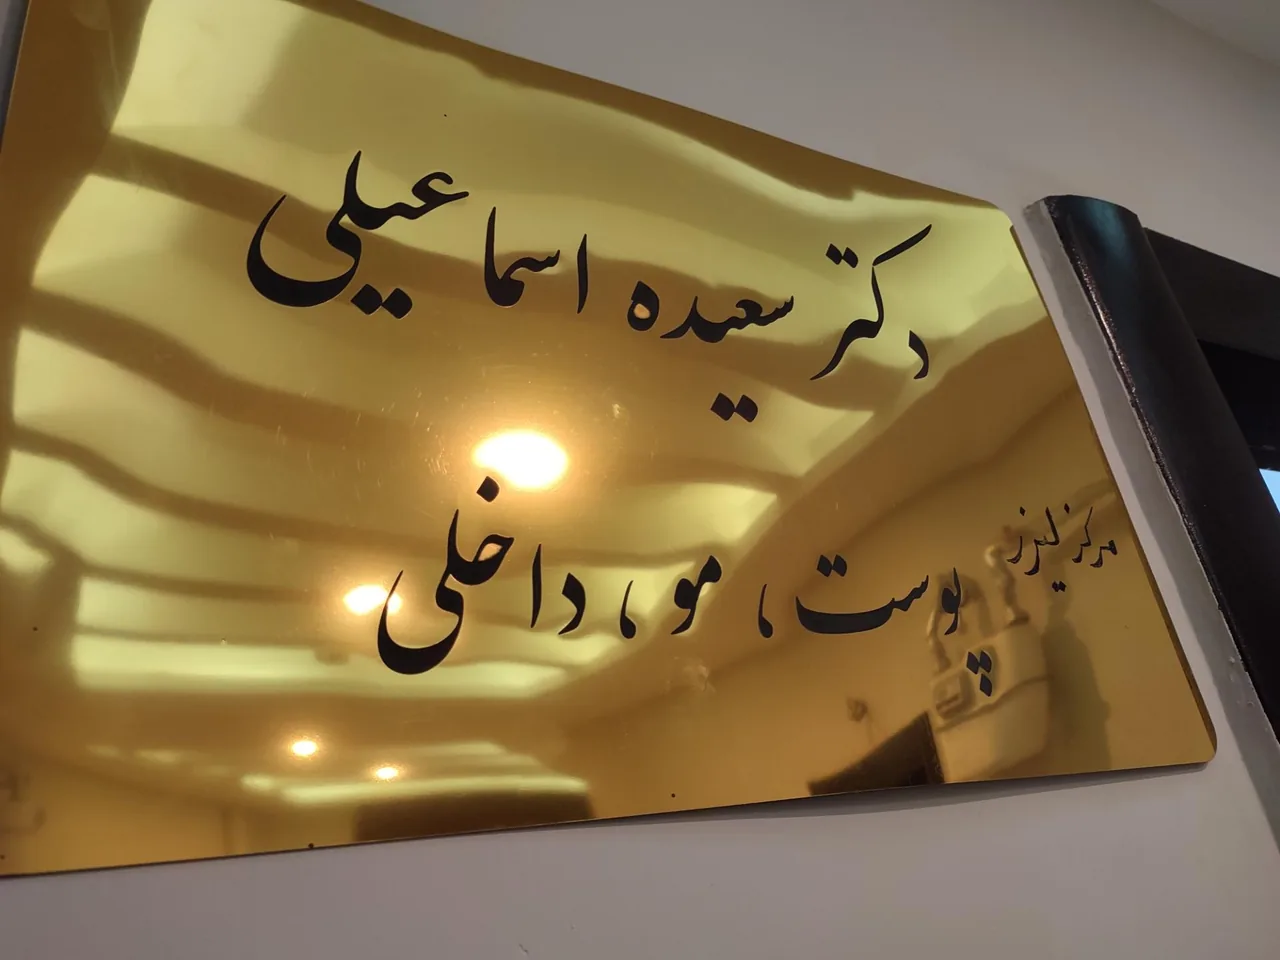 دکتر سعیده اسماعیلی
مرکز لیزر
پوست، مو، داخلی